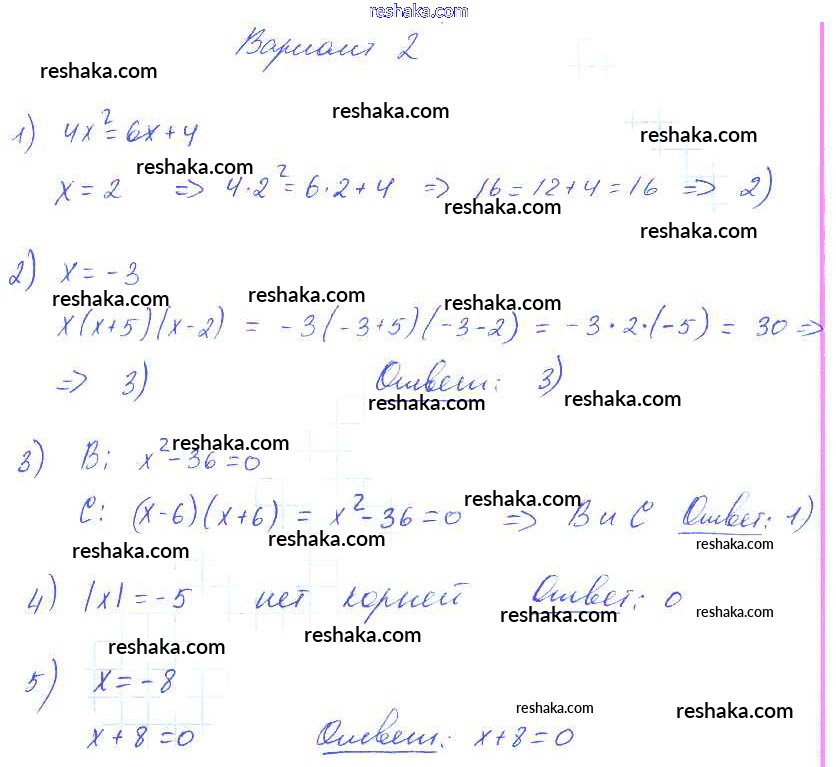 reshaka.com
Вариант 2
reshaka.com
reshaka.com
1) 4x² = 6x + 4
reshaka.com
reshaka.com
x = 2 => 4·2² = 6·2 + 4 => 16 = 12 + 4 = 16 => 2)
reshaka.com
reshaka.com
2) x = -3
reshaka.com reshaka.com reshaka.com
x(x+5)(x-2) = -3(-3+5)(-3-2) = -3·2·(-5) = 30 =>
=> 3) Ответ: 3)
reshaka.com reshaka.com
reshaka.com
3) B: x² - 36 = 0
reshaka.com
C: (x-6)(x+6) = x² - 36 = 0 => B и C Ответ: 1)
reshaka.com reshaka.com reshaka.com
4) |x| = -5 нет корней Ответ: 0
reshaka.com reshaka.com
reshaka.com reshaka.com
5) x = -8
reshaka.com reshaka.com
x + 8 = 0 Ответ: x + 8 = 0